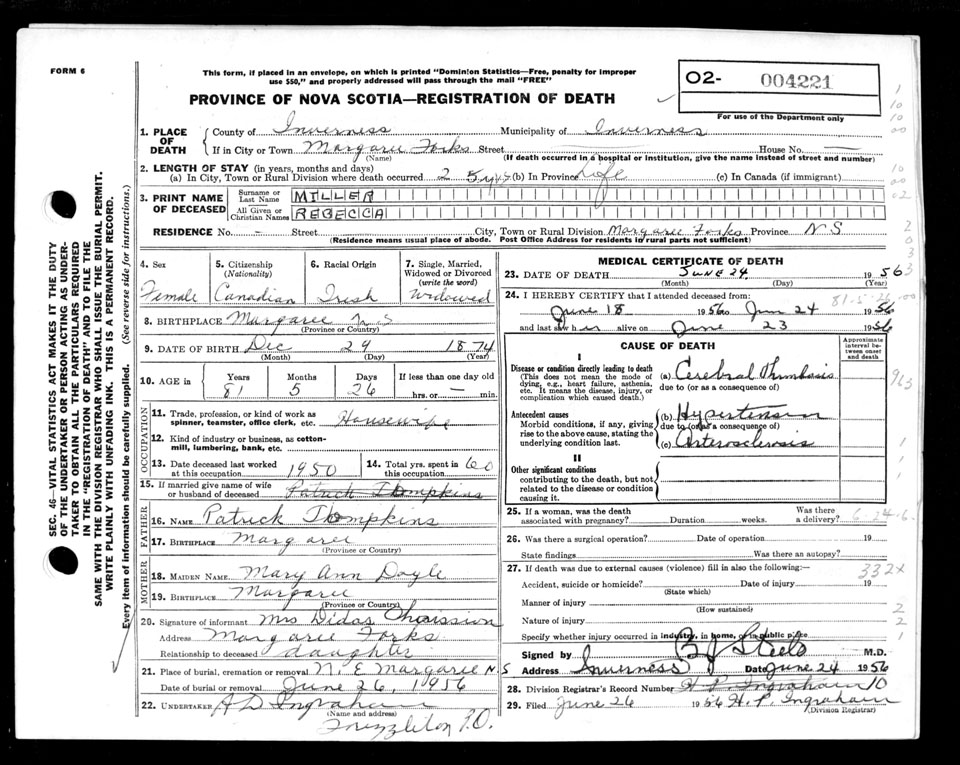 FORM 6
This form, if placed in an envelope, on which is printed "Dominion Statistics—Free, penalty for improper
use $50," and properly addressed will pass through the mail "FREE"
O2- 004221
For use of the Department only
PROVINCE OF NOVA SCOTIA—REGISTRATION OF DEATH
1. PLACE OF DEATH
County of Inverness Municipality of Inverness
If in City or Town Margaree Forks Street House No. —
(Name) (If death occurred in a hospital or institution, give the name instead of street and number)
2. LENGTH OF STAY (in years, months and days)
(a) In City, Town or Rural Division where death occurred 25 yrs (b) In Province Life (c) In Canada (if immigrant)
3. PRINT NAME OF DECEASED
Surname or Last Name MILLER
All Given or Christian Names REBECCA
RESIDENCE No. - Street City, Town or Rural Division Margaree Forks Province N S
(Residence means usual place of abode. Post Office Address for residents in rural parts not sufficient)
SEC. 46—VITAL STATISTICS ACT MAKES IT THE DUTY
OF THE UNDERTAKER OR PERSON ACTING AS UNDER-
TAKER TO OBTAIN ALL THE PARTICULARS REQUIRED
IN THE "REGISTRATION OF DEATH" AND TO FILE THE
SAME WITH THE DIVISION REGISTRAR WHO SHALL ISSUE THE BURIAL PERMIT.
WRITE PLAINLY WITH UNFADING INK. THIS IS A PERMANENT RECORD.
Every item of information should be carefully supplied. (See reverse side for instructions.)
4. Sex Female
5. Citizenship (Nationality) Canadian
6. Racial Origin Irish
7. Single, Married, Widowed or Divorced (write the word) Widowed
8. BIRTHPLACE Margaree N S
(Province or Country)
9. DATE OF BIRTH Dec 29 1874
(Month) (Day) (Year)
10. AGE in Years 81 Months 5 Days 26 If less than one day old — hrs. or min.
OCCUPATION
11. Trade, profession, or kind of work as spinner, teamster, office clerk, etc. Housewife
12. Kind of industry or business, as cotton-mill, lumbering, bank, etc.
13. Date deceased last worked at this occupation 1950
14. Total yrs. spent in this occupation 60
15. If married give name of wife or husband of deceased Patrick Tompkins
FATHER
16. NAME Patrick Tompkins
17. BIRTHPLACE Margaree
(Province or Country)
MOTHER
18. MAIDEN NAME Mary Ann Doyle
19. BIRTHPLACE Margaree
(Province or Country)
20. Signature of informant Mrs Didas
Address Margaree Forks
Relationship to deceased daughter
21. Place of burial, cremation or removal N. E Margaree N. S
Date of burial or removal June 26, 1956
22. UNDERTAKER A D Ingraham
(Name and address)
Frizzleton P.O.
MEDICAL CERTIFICATE OF DEATH
23. DATE OF DEATH JUNE 24 1956
(Month) (Day) (Year)
24. I HEREBY CERTIFY that I attended deceased from: 81-5-26
June 18 1956 to Jun 24 1956
and last saw her alive on June 23 1956
CAUSE OF DEATH
Approximate interval between onset and death
I
Disease or condition directly leading to death
(This does not mean the mode of dying, e.g., heart failure, asthenia, etc. It means the disease, injury, or complication which caused death.)
(a) Cerebral Thrombosis
due to (or as a consequence of)
Antecedent causes
Morbid conditions, if any, giving rise to the above cause, stating the underlying condition last.
(b) Hypertension
due to (or as a consequence of)
(c) Arterosclerosis
II
Other significant conditions
contributing to the death, but not related to the disease or condition causing it.
25. If a woman, was the death associated with pregnancy? Duration weeks. Was there a delivery?
26. Was there a surgical operation? Date of operation 19
State findings Was there an autopsy?
27. If death was due to external causes (violence) fill in also the following:— 332X
Accident, suicide or homicide? Date of injury 19
(State which)
Manner of injury
(How sustained)
Nature of injury
Specify whether injury occurred in industry, in home, or in public place
Signed by M.D.
Address Inverness Date June 24 1956
28. Division Registrar's Record Number H P. Ingraham 10
29. Filed June 26 1956 H. P. Ingraham
(Division Registrar)